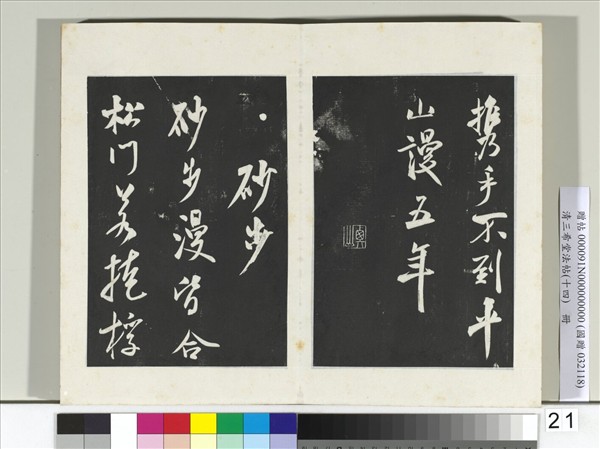 攜手不到平
山漫五年
砂步
砂步漫皆合
松門若挓桴
贈帖 000091N000000000 (國贈 032118)
清三希堂法帖(十四) 冊
21